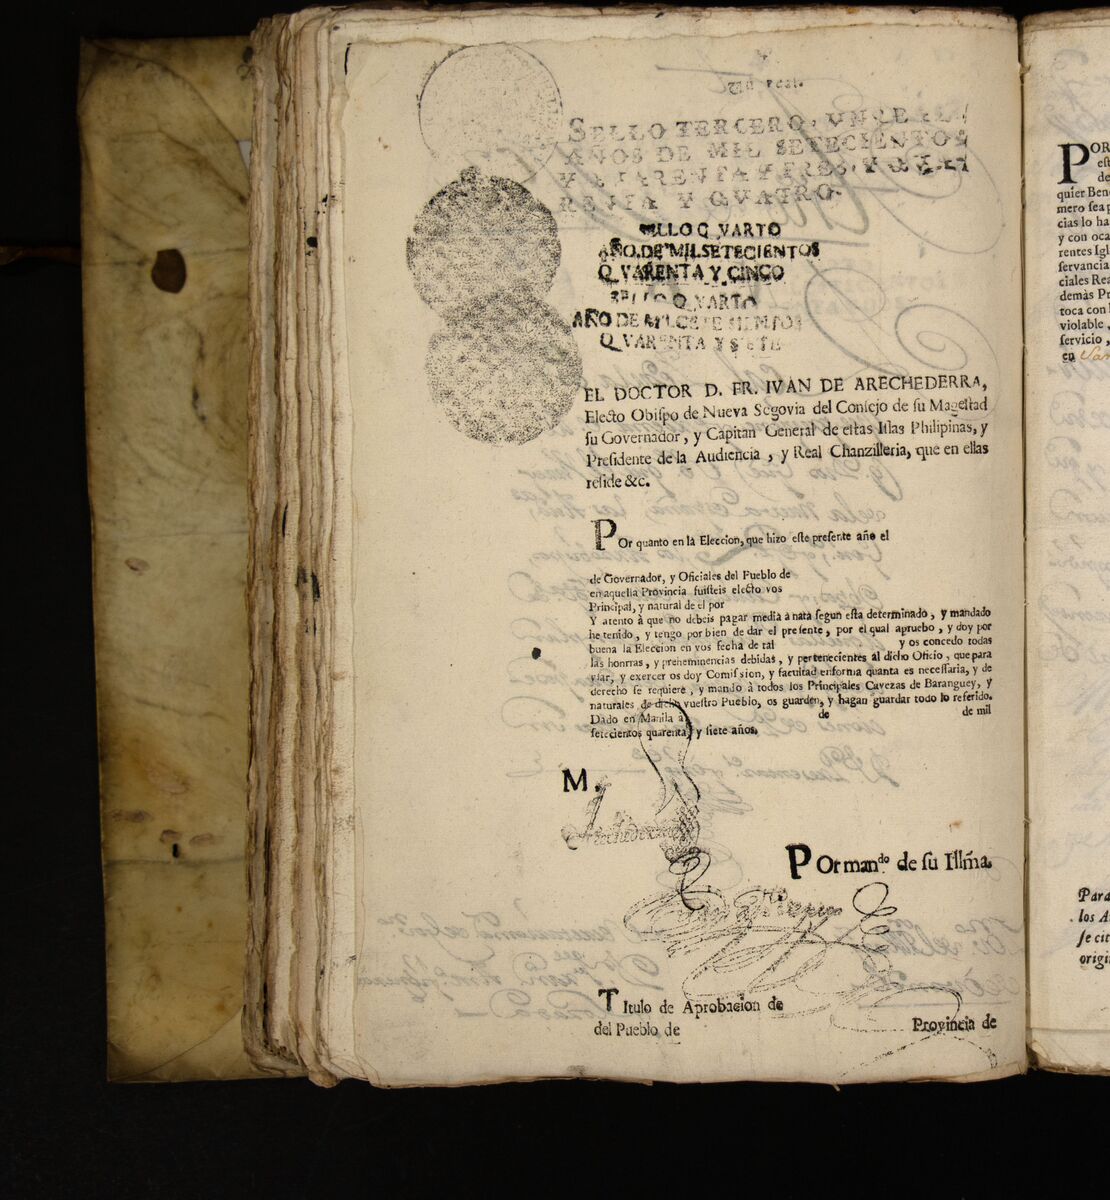 Un real.
SELLO TERCERO, VN REAL,
AÑOS DE MIL SETECIENTOS
Y QUARENTA Y TRES, Y QUAR
RENTA Y QVATRO.
SELLO QVARTO
AÑO. DE MIL SETECIENTOS
QVARENTA Y CINCO
SELLO QVARTO
AÑO DE MIL CETESIENTOS
QVARENTA Y SIETE
EL DOCTOR D. FR. IVAN DE ARECHEDERRA,
Electo Obiſpo de Nueva Segovia del Conſejo de ſu Mageſtad
ſu Governador, y Capitan General de eſtas Iſlas Philipinas, y
Preſidente de la Audiencia, y Real Chanzilleria, que en ellas
reſide &c.
POr quanto en la Eleccion, que hizo eſte preſente año el
de Governador, y Oficiales del Pueblo de
en aquella Provincia fuiſteis electo vos
Principal, y natural de el por
Y atento à que no debeis pagar media ànata ſegun eſta determinado, y mandado
he tenido, y tengo por bien de dar el preſente, por el qual apruebo, y doy por
buena la Eleccion en vos fecha de tal y os concedo todas
las honrras, y preheminencias debidas, y pertenecientes al dicho Oficio, que para
vſar, y exercer os doy Comiſsion, y facultad enforma quanta es neceſſaria, y de
derecho ſe requiere, y mando à todos los Principales Cavezas de Baranguey, y
naturales de dicho vueſtro Pueblo, os guarden, y hagan guardar todo lo referido.
Dado en Manila à de de mil
ſetecientos quarenta, y ſiete años.
M.
Arechederra
POr man.do de ſu Illm̃a.
TItulo de Aprobacion de
del Pueblo de Provincia de
POR
eſt
de
quier Ben
mero ſea p
cias lo ha
y con oca
rentes Igl
ſervancia
ciales Rea
demàs Pr
toca con l
violable,
ſervicio,
en San
Para
los A
ſe cit
origi